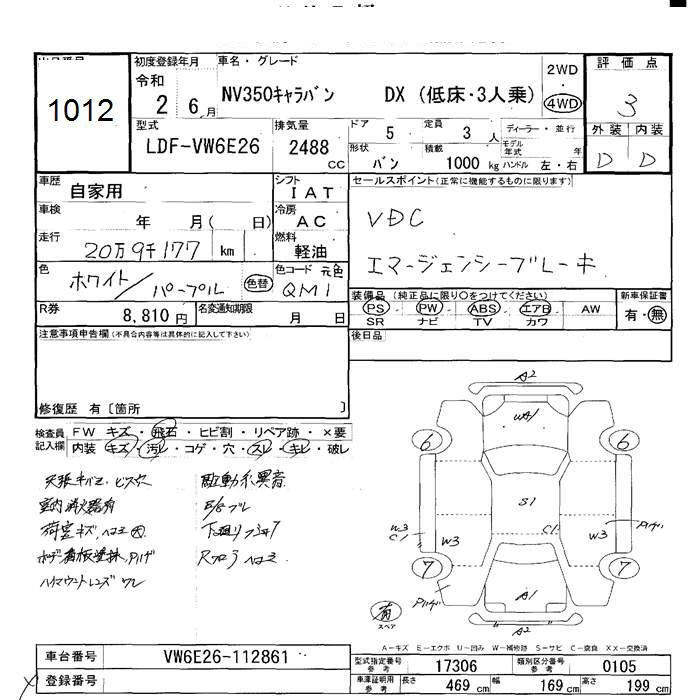 1012
初度登録年月
令和
2 6月
車名・グレード
NV350キャラバン DX (低床・3人乗)
2WD
4WD
評価点
3
外装 内装
D D
型式
LDF-VW6E26
排気量
2488 cc
ドア 5
定員 3 人
形状 バン
積載 1000 kg
ディーラー・並行
モデル年式 年
ハンドル 左・右
車歴 自家用
シフト IAT
車検 年 月( 日)
冷房 AC
走行 20万9千177 km
燃料 軽油
セールスポイント(正常に機能するものに限ります)
VDC
エマージェンシーブレーキ
色 ホワイト/パープル 色替
色コード 元色
QM1
R券 8,810円
名変通知期限 月 日
装備品 (純正品に限り○をつけてください)
PS・PW・ABS・エアB・AW
SR ナビ TV カワ
新車保証書
有・無
注意事項申告欄(不具合内容等は具体的に記入して下さい)
後日品
修復歴 有〔箇所 〕
検査員記入欄
FW キズ・飛石・ヒビ割・リペア跡・×要
内装 キズ・汚レ・コゲ・穴・スレ・キレ・破レ
天張キバミ ビス穴
室内消火器有
荷室キズ、ヘコミ凹
ハイマウントレンズ ワレ
駆動系異音
E/Gブレ
A2
WA1
6
6
S1
W3
C1
W3
C1
7
7
A1
A2
有
スペア
A-キズ E-エクボ U-凹み W-補修跡 S-サビ C-腐食 XX-交換済
車台番号 VW6E26-112861
登録番号
型式指定番号 参考 17306
類別区分番号 参考 0105
車庫証明用 参考
長さ 469 cm 幅 169 cm 高さ 199 cm